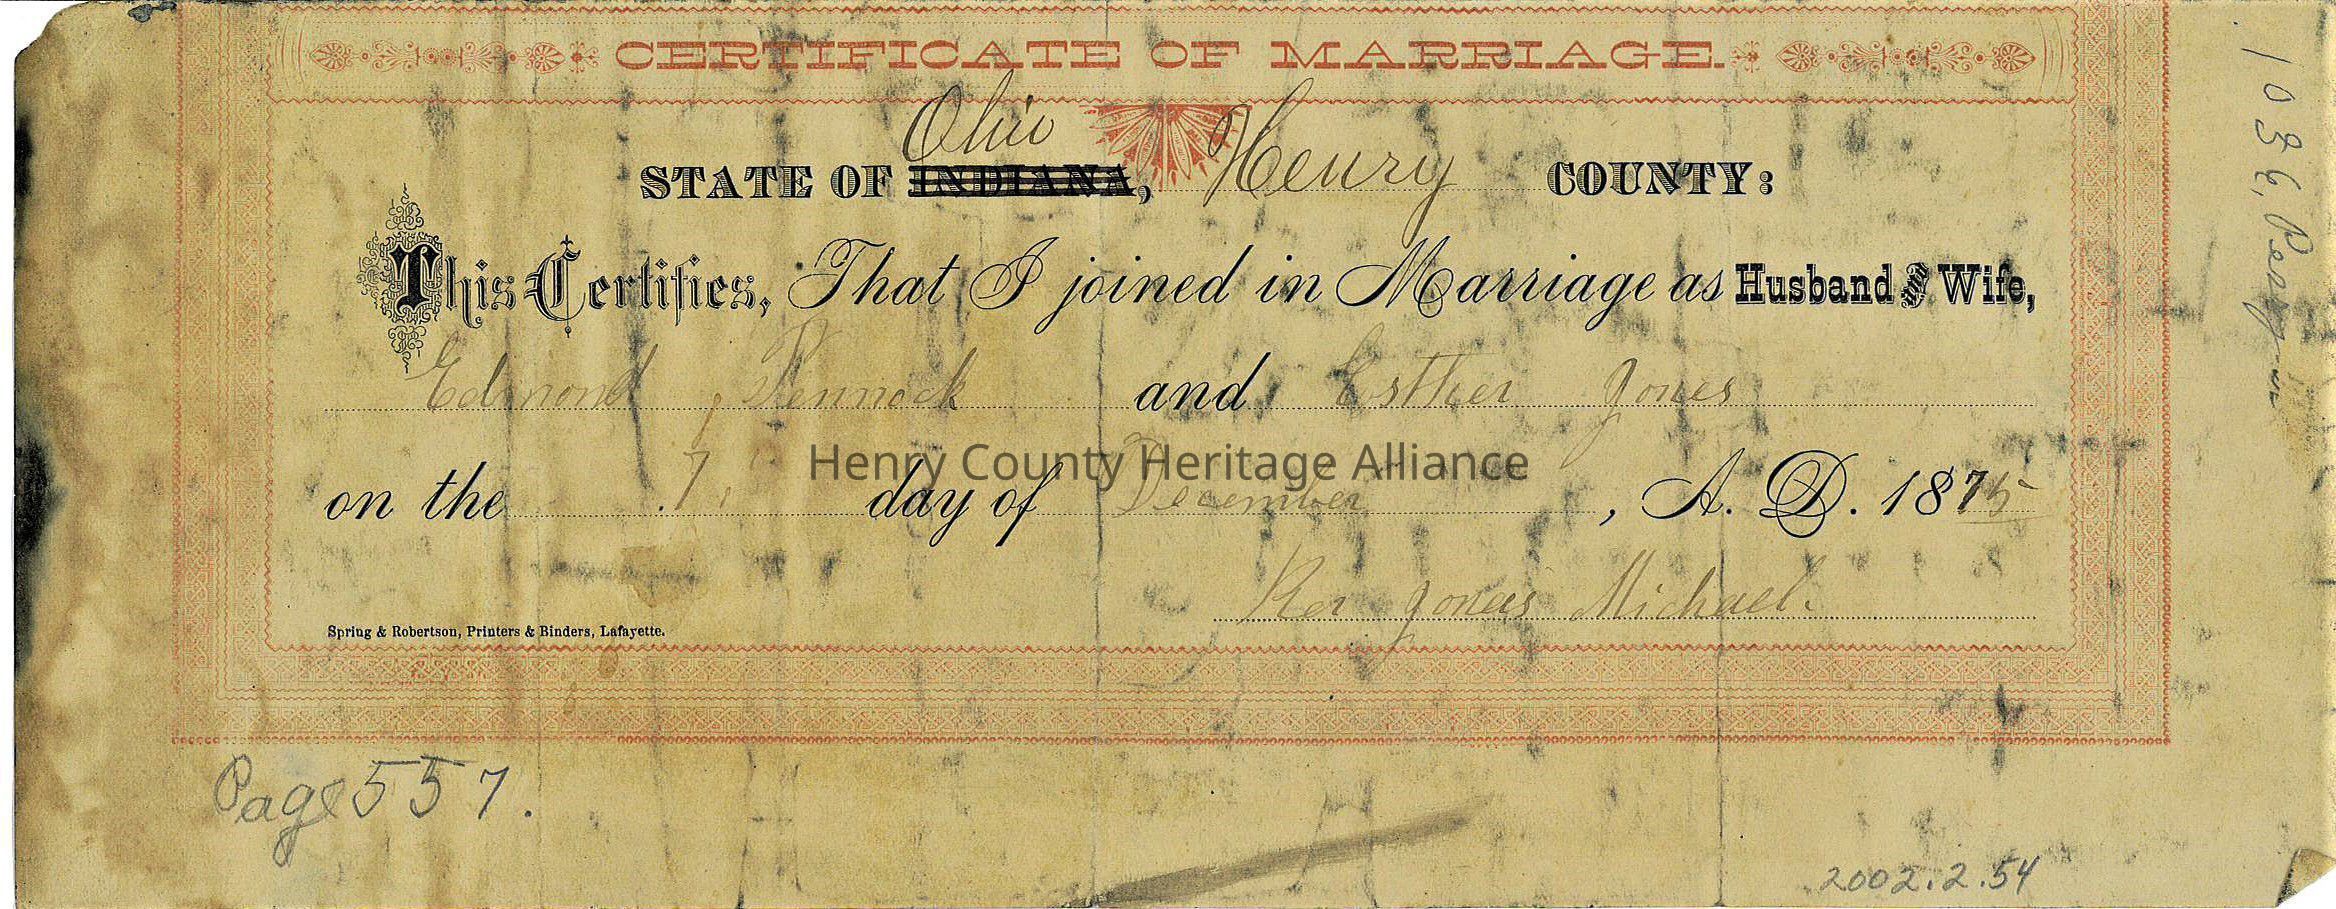 CERTIFICATE OF MARRIAGE.
Ohio
STATE OF INDIANA, Henry COUNTY:
This Certifies, That I joined in Marriage as Husband & Wife,
Edmond Pennock and Esther Jones
on the 7 day of December, A. D. 1875
Henry County Heritage Alliance
Rev Jonas Michael.
Spring & Robertson, Printers & Binders, Lafayette.
Page 557.
2002.2.54